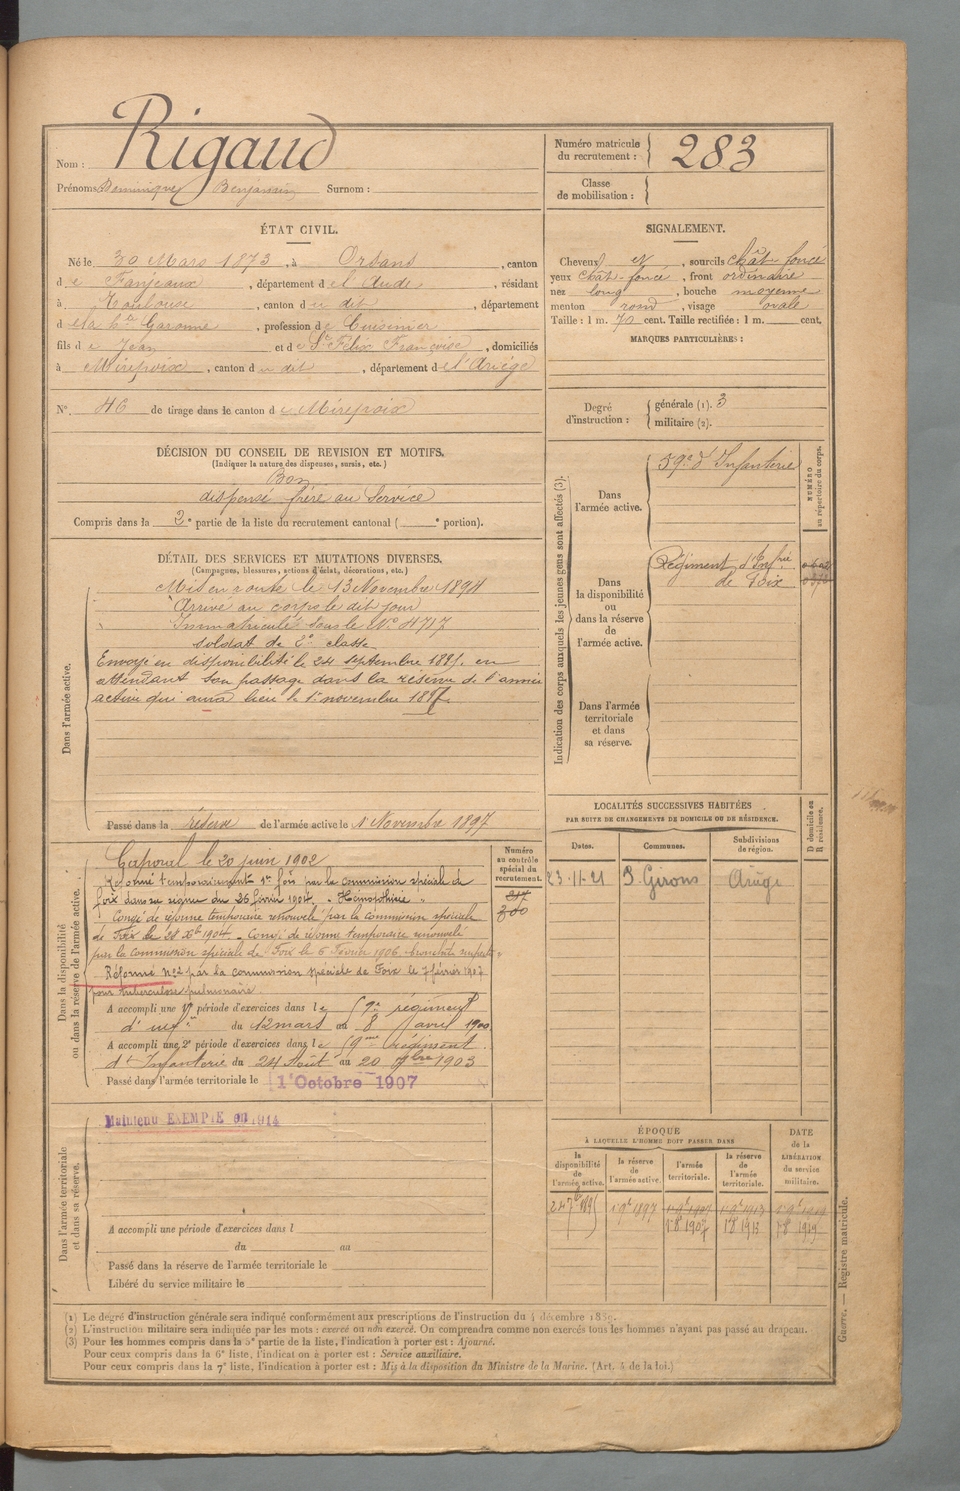 Nom : Rigaud
Prénoms Dominique Benjamin Surnom :
Numéro matricule du recrutement : 283
Classe de mobilisation :
ÉTAT CIVIL.
Né le 30 Mars 1873, à Orsans, canton
de Fanjeaux, département de l'Aude, résidant
à Toulouse, canton du dit, département
de la Hte Garonne, profession de Cuisinier
fils de Jean et de St Félix Françoise, domiciliés
à Mirepoix, canton du dit, département de l'Ariège
N° 46 de tirage dans le canton de Mirepoix
SIGNALEMENT.
Cheveux et, sourcils chât-foncé
yeux chât-foncé, front ordinaire
nez long, bouche moyenne
menton rond, visage ovale
Taille : 1 m. 70 cent. Taille rectifiée : 1 m. cent.
MARQUES PARTICULIÈRES :
Degré d'instruction : générale (1). 3
militaire (2).
DÉCISION DU CONSEIL DE REVISION ET MOTIFS.
(Indiquer la nature des dispenses, sursis, etc.)
Bon
dispensé frère au Service
Compris dans la 2e partie de la liste du recrutement cantonal ( e portion).
DÉTAIL DES SERVICES ET MUTATIONS DIVERSES.
(Campagnes, blessures, actions d'éclat, décorations, etc.)
Dans l'armée active.
Mis en route le 13 Novembre 1894
Arrivé au corps le dit jour
Immatriculé sous le N° 4717
soldat de 2e classe
Envoyé en disponibilité le 24 septembre 1895 en
attendant son passage dans la réserve de l'armée
active qui aura lieu le 1er novembre 1897.
Passé dans la réserve de l'armée active le 1 Novembre 1897
Indication des corps auxquels les jeunes gens sont affectés (3).
Dans l'armée active.
59e d'Infanterie
NUMÉRO au répertoire du corps.
Dans la disponibilité ou dans la réserve de l'armée active.
Régiment d'Infrie
de Foix
Dans l'armée territoriale et dans sa réserve.
Dans la disponibilité ou dans la réserve de l'armée active.
Numéro au contrôle spécial du recrutement.
317
300
Caporal le 20 juin 1902
Réformé temporairement 1re fois par la commission spéciale de
foix dans sa séance du 26 février 1904. "Hémoptisie"
Congé de réforme temporaire renouvelé par la commission spéciale
de Foix le 28 Xbre 1904. Congé de réforme temporaire renouvelé
par la commission spéciale de Foix le 6 Février 1906
Réformé n°2 par la commission spéciale de Foix le 7 février 1907
pour tuberculose pulmonaire.
A accompli une 1re période d'exercices dans le 59e régiment
d'infie du 12 mars au 8 avril 1900
A accompli une 2e période d'exercices dans le 59me régiment
d'Infanterie du 24 Août au 20 7bre 1903
Passé dans l'armée territoriale le 1er Octobre 1907
LOCALITÉS SUCCESSIVES HABITÉES
PAR SUITE DE CHANGEMENTS DE DOMICILE OU DE RÉSIDENCE.
D domicile ou R résidence.
Dates. Communes. Subdivisions de région.
23-11-21 St Girons Ariège
Dans l'armée territoriale et dans sa réserve.
Maintenu EXEMPTÉ en 1914
A accompli une période d'exercices dans l
du au
Passé dans la réserve de l'armée territoriale le
Libéré du service militaire le
ÉPOQUE
À LAQUELLE L'HOMME DOIT PASSER DANS
la disponibilité de l'armée active.
la réserve de l'armée active.
l'armée territoriale.
la réserve de l'armée territoriale.
DATE de la LIBÉRATION du service militaire.
24 7bre 1895
1 9bre 1897
1 9bre 1907
1 9bre 1913
1 9bre 1919
1 8 1907
1 8 1913
1 8 1919
(1) Le degré d'instruction générale sera indiqué conformément aux prescriptions de l'instruction du 4 décembre 1889.
(2) L'instruction militaire sera indiquée par les mots : exercé ou non exercé. On comprendra comme non exercés tous les hommes n'ayant pas passé au drapeau.
(3) Pour les hommes compris dans la 5e partie de la liste, l'indication à porter est : Ajourné.
Pour ceux compris dans la 6e liste, l'indication à porter est : Service auxiliaire.
Pour ceux compris dans la 7e liste, l'indication à porter est : Mis à la disposition du Ministre de la Marine. (Art. 4 de la loi.)
Guerre. — Registre matricule.